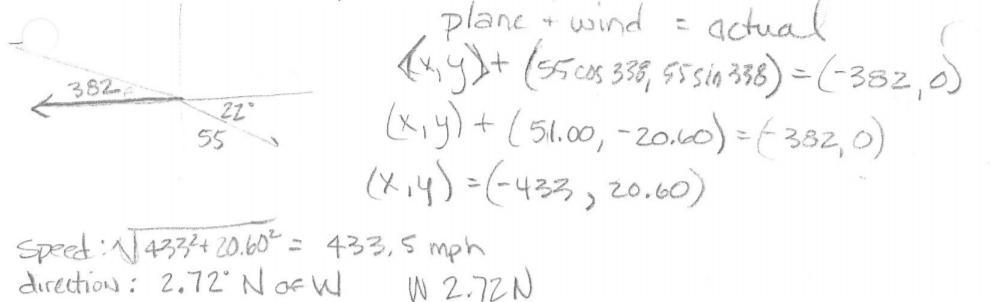 plane + wind = actual
(x,y) + (55cos 338, 55sin 338) = (-382, 0)
(x,y) + (51.00, -20.60) = (-382, 0)
(x,y) = (-433, 20.60)
382
22°
55
speed: √433²+20.60² = 433.5 mph
direction: 2.72° N of W W 2.72N